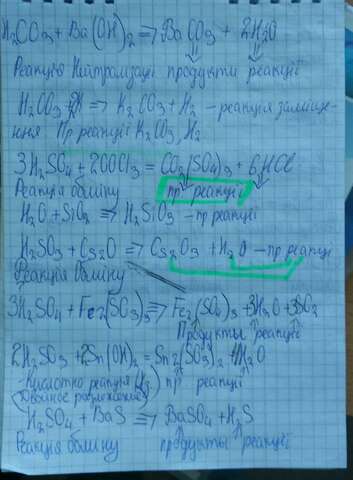 H₂CO₃ + Ba(OH)₂ => BaCO₃ + 2H₂O
Реакція Нейтролізації продукти реакції
H₂CO₃ + => K₂CO₃ + H₂ - реакція заміще-
ння Пр реакції K₂CO₃, H₂
3H₂SO₄ + = (SO₄)₃ + 6HCl
Реакція обміну пр реакції
H₂O + SiO₂ => H₂SiO₃ - пр реакції
H₂SO₃ + Cs₂O => + H₂O - пр реакції
Реакція обміну
3H₂SO₄ + Fe₂(SO₃)₃ => Fe₂(SO₄)₃ + 3H₂O + 3SO₂
Продукты реакції
2H₂SO₃ + 2Sn(OH)₂ = Sn₂(SO₃)₂ + 4H₂O
Кислотно реакція пр реакції
H₂SO₄ + BaS => BaSO₄ + H₂S
Реакція обміну продукты реакції